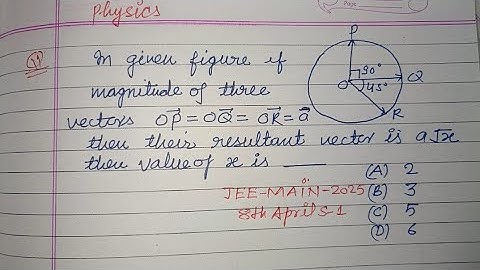 Physics
Page
Q1) In given figure if
magnitude of three
vectors OP⃗ = OQ⃗ = OR⃗ = a⃗
then their resultant vector is a√x
then value of x is ____
P
90°
O
Q
45°
R
(A) 2
JEE-MAIN-2025 (B) 3
8th April S-1 (C) 5
(D) 6